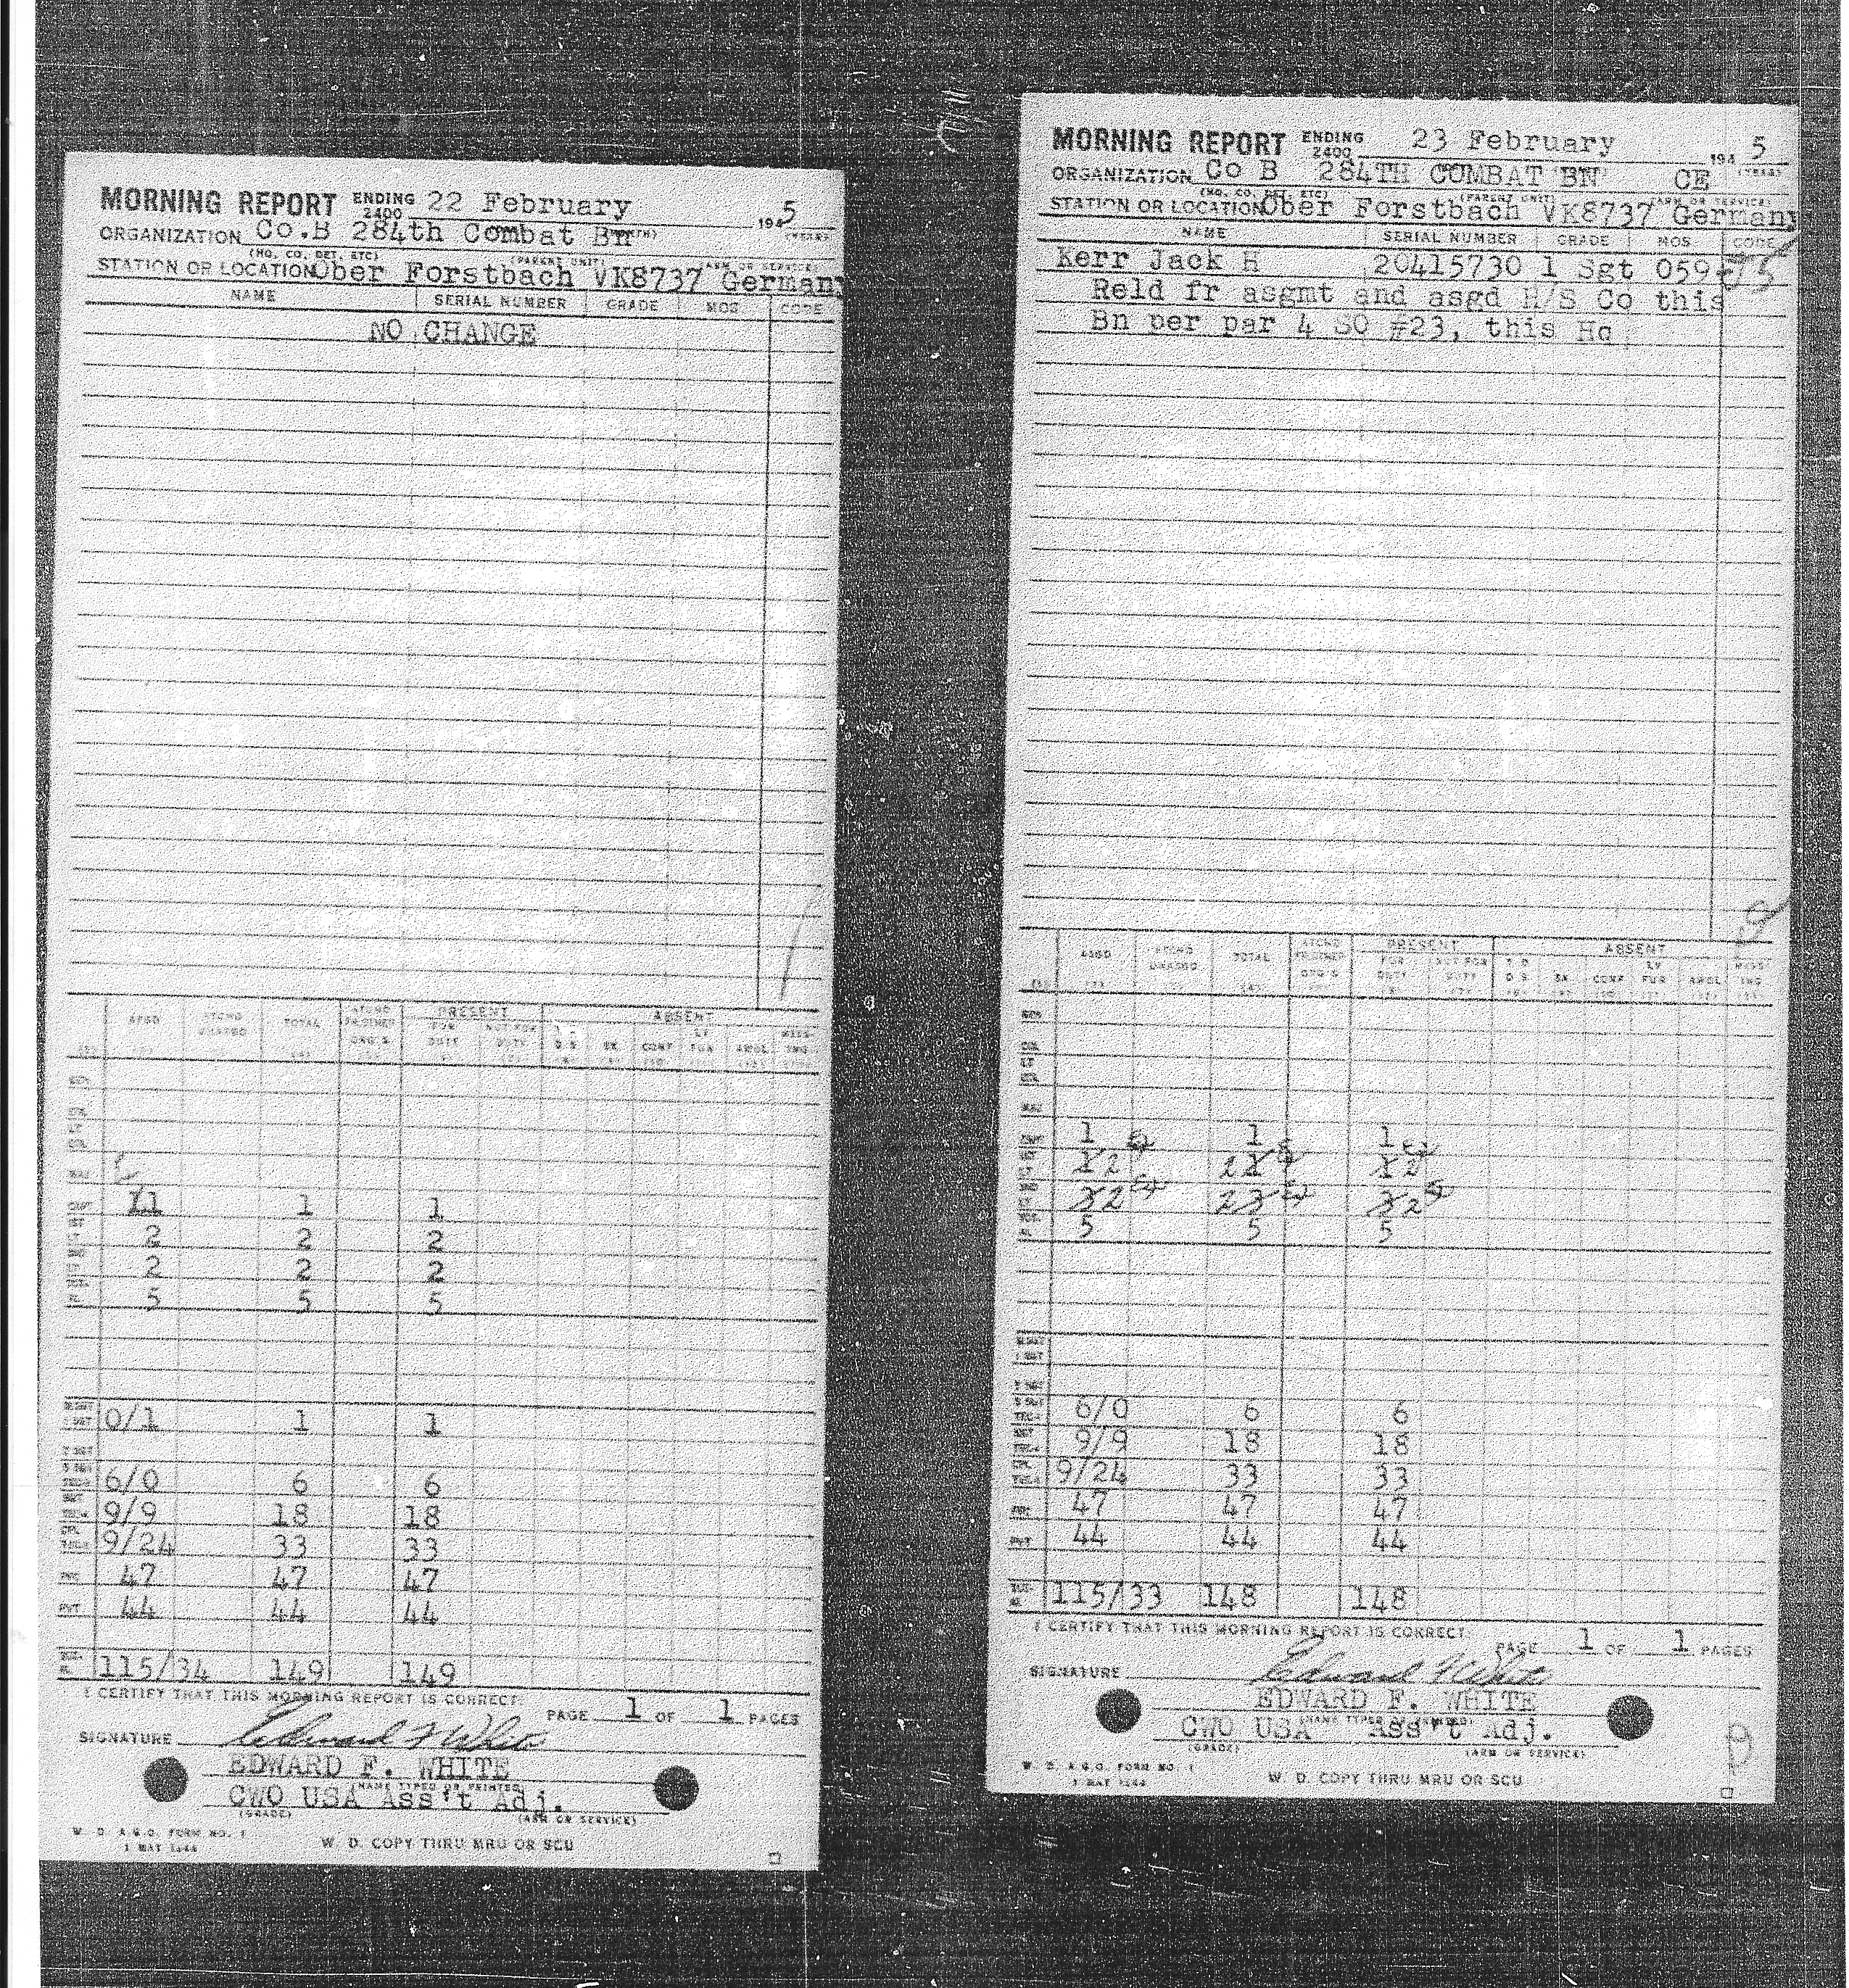 MORNING REPORT ENDING 2400 22 February 1945
ORGANIZATION Co.B 284th Combat Bn
(HQ. CO. DET. ETC) (PARENT UNIT) (ARM OR SERVICE)
STATION OR LOCATION Ober Forstbach VK8737 Germany
NAME SERIAL NUMBER GRADE MOS CODE
NO CHANGE
ASGD ATCHD UNASGD TOTAL ATCHD FR OTHER ORG'S PRESENT ABSENT
FOR DUTY NOT FOR DUTY D S SK CONF LV FUR AWOL MISSING
MAJ
CAPT 1 1 1
2 2 2
2 2 2
5 5 5
0/1 1 1
6/0 6 6
9/9 18 18
9/24 33 33
47 47 47
PVT 44 44 44
115/34 149 149
I CERTIFY THAT THIS MORNING REPORT IS CORRECT:
PAGE 1 OF 1 PAGES
SIGNATURE Edward F White
EDWARD F. WHITE
(NAME TYPED OR PRINTED)
CWO USA Ass't Adj.
(GRADE) (ARM OR SERVICE)
W. D. A.G.O. FORM NO. 1
1 MAY 1944
W. D. COPY THRU MRU OR SCU
MORNING REPORT ENDING 2400 23 February 1945
(YEAR)
ORGANIZATION Co B 284TH COMBAT BN CE
(HQ. CO. DET. ETC) (PARENT UNIT) (ARM OR SERVICE)
STATION OR LOCATION Ober Forstbach VK8737 Germany
NAME SERIAL NUMBER GRADE MOS CODE
Kerr Jack H 20415730 1 Sgt 059 75
Reld fr asgmt and asgd H/S Co this
Bn per par 4 SO #23, this Hq
ASGD ATCHD UNASGD TOTAL ATCHD FR OTHER ORG'S PRESENT ABSENT
FOR DUTY NOT FOR DUTY T D D S SK CONF LV FUR AWOL MISSING
COL
MAJ
1 1 1
1 2 2 1 1 2
3 2 2 3 3 2
5 5 5
6/0 6 6
9/9 18 18
9/24 33 33
47 47 47
PVT 44 44 44
115/33 148 148
I CERTIFY THAT THIS MORNING REPORT IS CORRECT:
PAGE 1 OF 1 PAGES
SIGNATURE Edward F White
EDWARD F. WHITE
(NAME TYPED OR PRINTED)
CWO USA Ass't Adj.
(GRADE) (ARM OR SERVICE)
W. D. A.G.O. FORM NO. 1
1 MAY 1944
W. D. COPY THRU MRU OR SCU